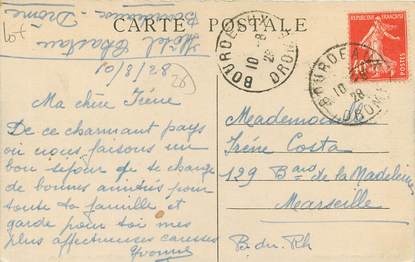 CARTE POSTALE
Hôtel Chastan
Bourdeaux - Drôme
10/8/28
26
Ma chère Irène
De ce charmant pays
où nous faisons un
bon séjour je te charge
de bonnes amitiés pour
toute ta famille et
garde pour toi mes
plus affectueuses caresses
Yvonne
BOURDEAUX
10 -8
28
DROME
REPUBLIQUE FRANÇAISE
40c
POSTES
BOURDEAUX
10 -8
28
DROME
Mademoiselle
Irène Costa
129 Bard de la Madeleine
Marseille
B. du Rh